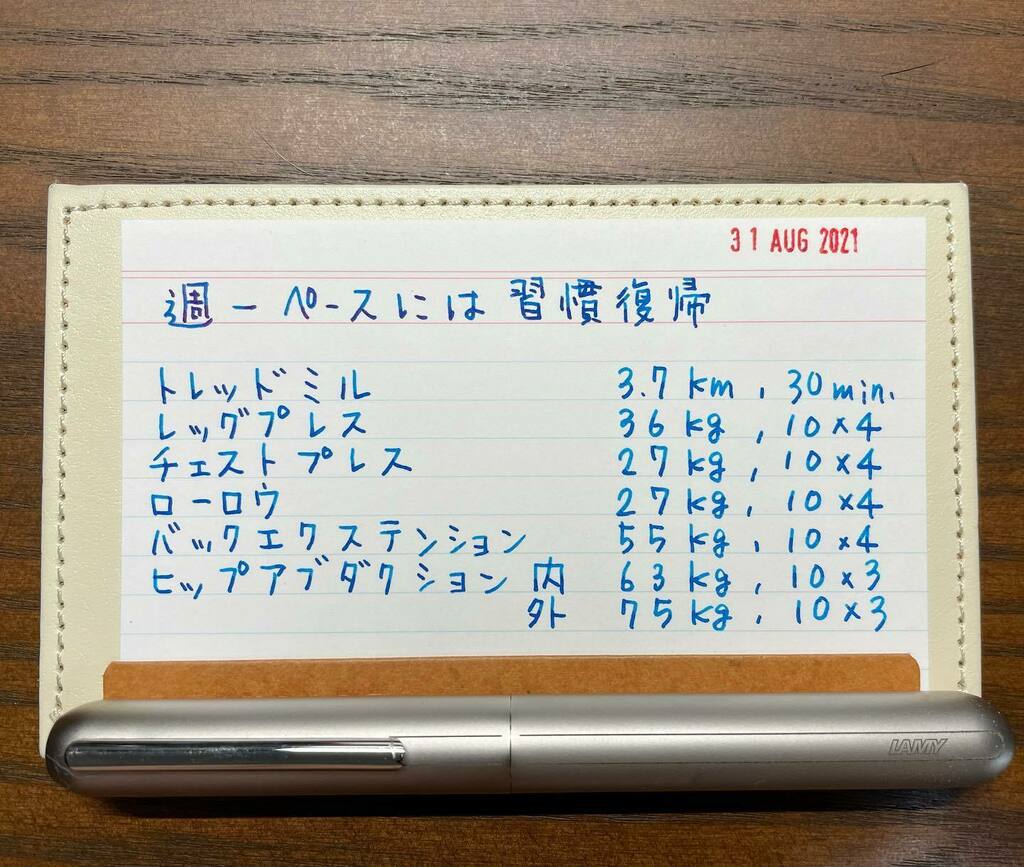 31 AUG 2021
週一ペースには習慣復帰
トレッドミル 3.7 km, 30 min.
レッグプレス 36 kg, 10×4
チェストプレス 27 kg, 10×4
ローロウ 27 kg, 10×4
バックエクステンション 55 kg, 10×4
ヒップアブダクション 内 63 kg, 10×3
外 75 kg, 10×3
LAMY